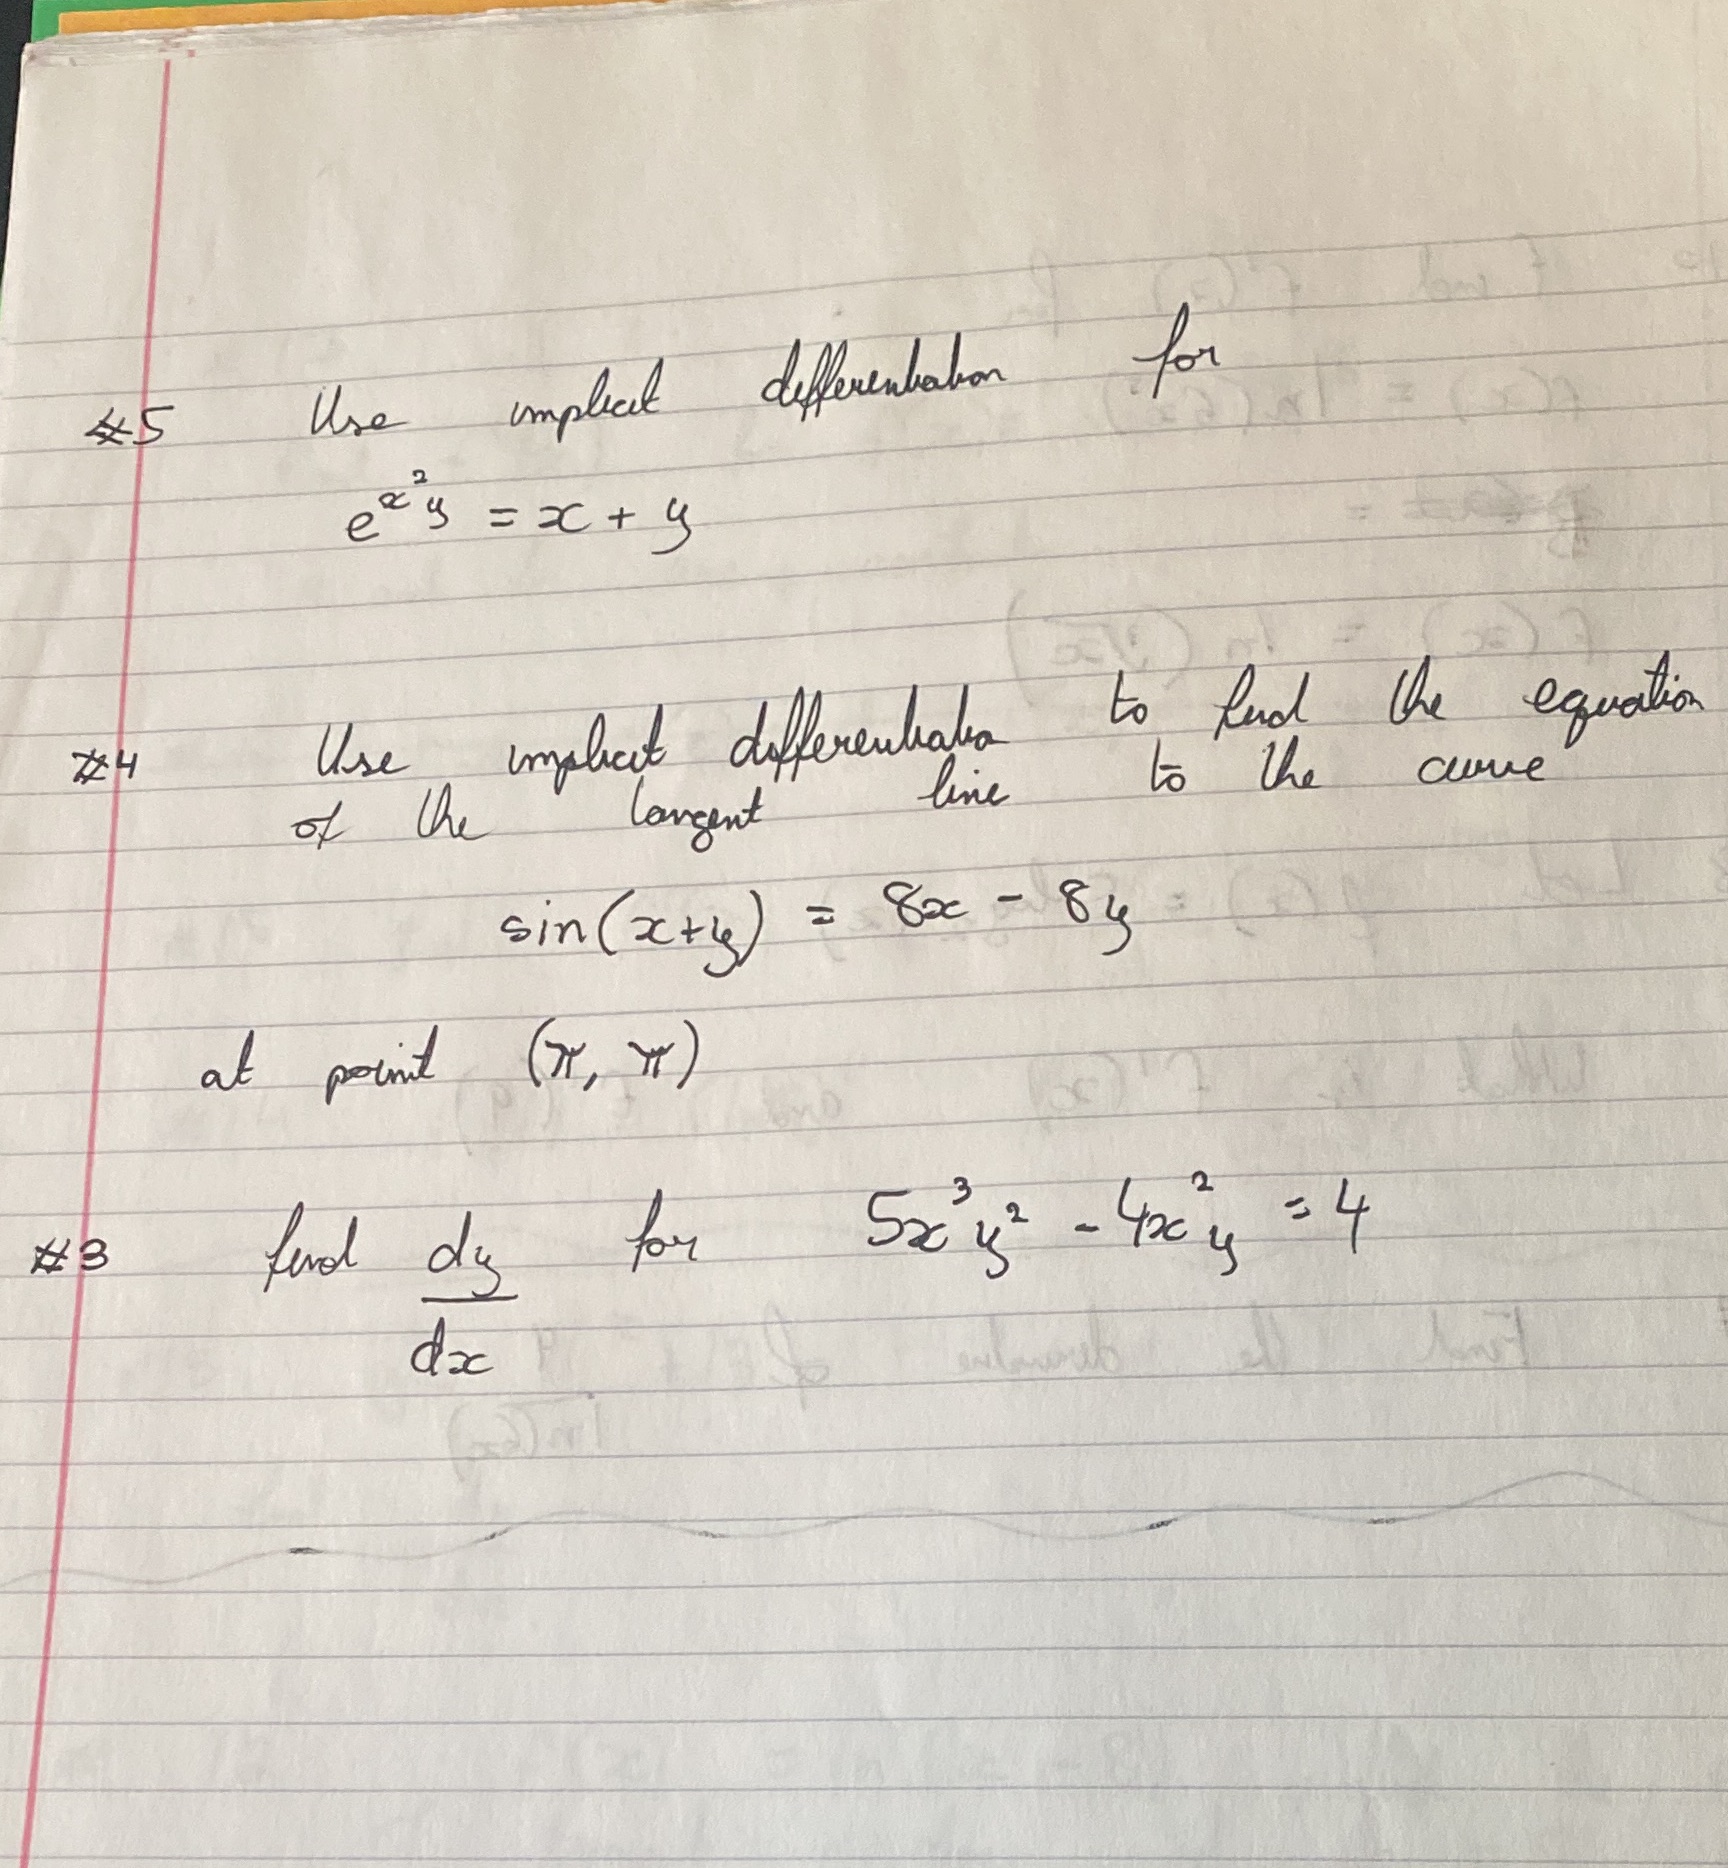 #5 Use implicit differentiation for
e^{x^2 y} = x + y
#4 Use implicit differentiation to find the equation
of the tangent line to the curve
sin(x+y) = 8x - 8y
at point (π, π)
#3 find dy/dx for 5x^3y^2 - 4x^2y = 4